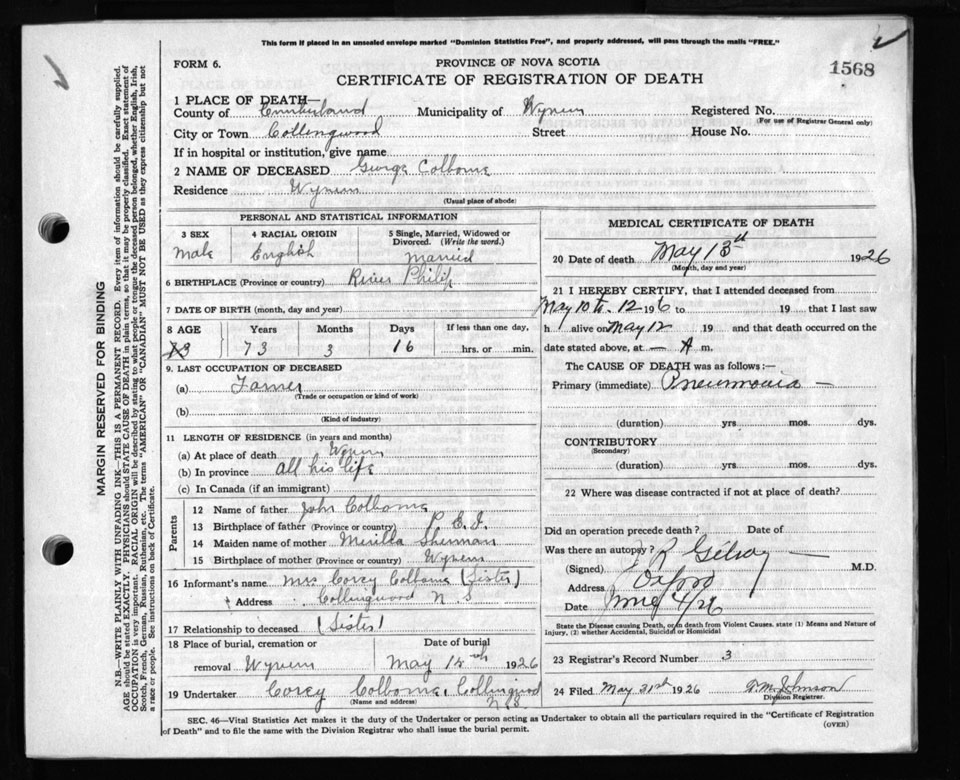 This form if placed in an unsealed envelope marked "Dominion Statistics Free", and properly addressed, will pass through the mails "FREE."
FORM 6.
PROVINCE OF NOVA SCOTIA
1568
CERTIFICATE OF REGISTRATION OF DEATH
1 PLACE OF DEATH—
County of Cumberland Municipality of Wyvern Registered No.
(For use of Registrar General only)
City or Town Collingwood Street House No.
If in hospital or institution, give name
2 NAME OF DECEASED George Colborne
Residence Wyvern
(Usual place of abode)
PERSONAL AND STATISTICAL INFORMATION
3 SEX 4 RACIAL ORIGIN 5 Single, Married, Widowed or Divorced. (Write the word.)
Male English Married
6 BIRTHPLACE (Province or country) River Philip
7 DATE OF BIRTH (month, day and year)
8 AGE Years Months Days If less than one day,
73 73 3 16 hrs. or min.
9. LAST OCCUPATION OF DECEASED
(a) Farmer
(Trade or occupation or kind of work)
(b)
(Kind of industry)
11 LENGTH OF RESIDENCE (in years and months)
(a) At place of death Wyvern
(b) In province all his life
(c) In Canada (if an immigrant)
Parents
12 Name of father John Colborne
13 Birthplace of father (Province or country) P. E. I.
14 Maiden name of mother Sherman
15 Birthplace of mother (Province or country) Wyvern
16 Informant's name Mrs Corey Colborne (Sister)
Address Collingwood N. S
17 Relationship to deceased (Sister)
18 Place of burial, cremation or removal Wyvern Date of burial May 1926
19 Undertaker Corey Colborne, Collingwood N.S
(Name and address)
MEDICAL CERTIFICATE OF DEATH
20 Date of death May 13th 1926
(Month, day and year)
21 I HEREBY CERTIFY, that I attended deceased from
May 10th. 12 1926 to 19 that I last saw
h alive on May 12 19 and that death occurred on the
date stated above, at — A m.
The CAUSE OF DEATH was as follows:—
Primary (immediate) Pneumonia —
(duration) yrs. mos. dys.
CONTRIBUTORY
(Secondary)
(duration) yrs. mos. dys.
22 Where was disease contracted if not at place of death?
Did an operation precede death? Date of
Was there an autopsy?
(Signed) Gilroy — M.D.
Address Oxford
Date June 4/26
State the Disease causing Death, or in death from Violent Causes, state (1) Means and Nature of
Injury, (2) whether Accidental, Suicidal or Homicidal
23 Registrar's Record Number 3
24 Filed May 31st 1926 Johnson
Division Registrar.
SEC. 46—Vital Statistics Act makes it the duty of the Undertaker or person acting as Undertaker to obtain all the particulars required in the "Certificate of Registration
of Death" and to file the same with the Division Registrar who shall issue the burial permit.
(OVER)
MARGIN RESERVED FOR BINDING
N.B.—WRITE PLAINLY WITH UNFADING INK—THIS IS A PERMANENT RECORD. Every item of information should be carefully supplied.
AGE should be stated EXACTLY. PHYSICIANS should STATE CAUSE OF DEATH in plain terms, so that it may be properly classified. Exact statement of
OCCUPATION is very important. RACIAL ORIGIN will be described by stating to what people or tongue the deceased person belonged, whether English, Irish,
Scotch, French, German, Russian, Ruthenian, etc. The terms "AMERICAN" OR "CANADIAN" MUST NOT BE USED as they express citizenship but not
a race or people. See instructions on back of Certificate.